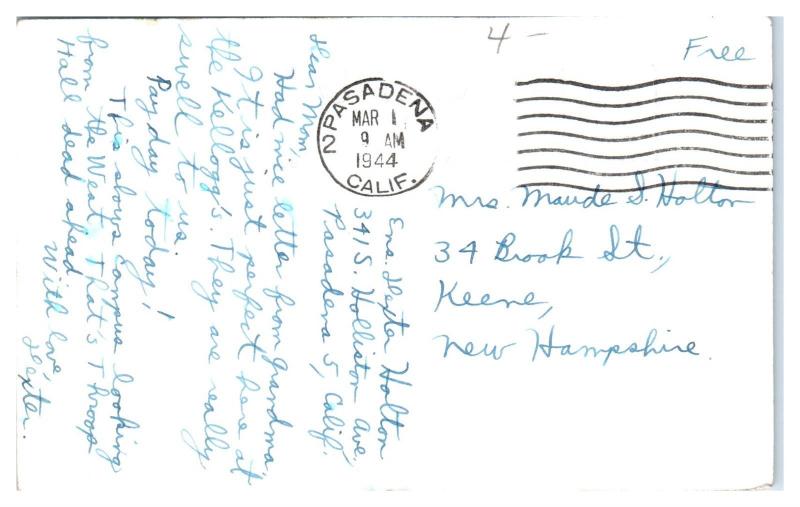 4 -
Free
2 PASADENA CALIF.
MAR 1
9 AM
1944
Mrs. Maude S. Holton
34 Brook St.,
Keene,
New Hampshire.
Ens. Dexter Holton
341 S. Holliston Ave,
Pasadena 5, Calif.
Dear Mom,
Had nice letter from Grandma.
It is just perfect here at
the Kellogg's. They are really
swell to us.
Payday today!
This shows campus looking
from the West. That's Throop
Hall dead ahead
With love,
Dexter.